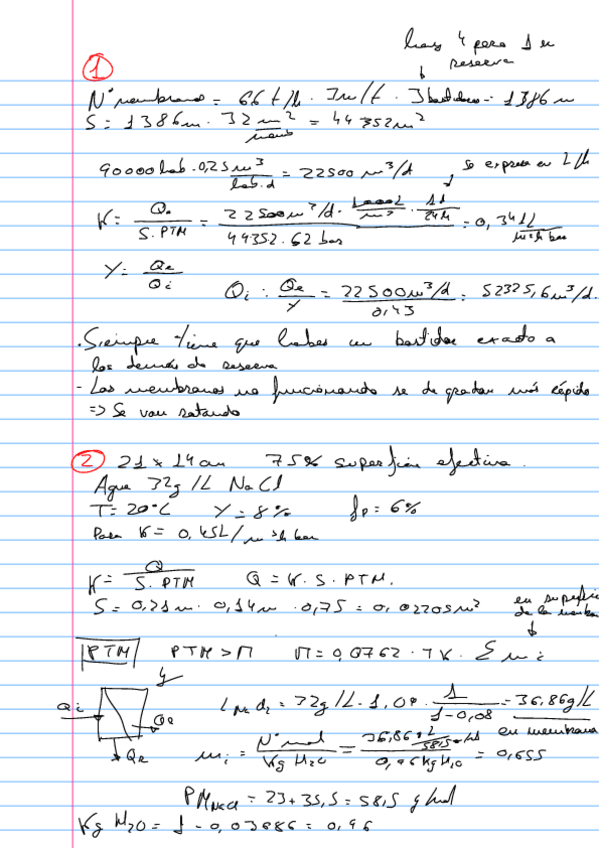 hay 4 pero 1 en
reserva
①
Nº membranas = 66 t/b · 7m/t · 3 bastidores = 1386 m
S = 1386m · 32 m²/memb = 44352m²
90000 hab · 0,25 m³/hab·d = 22500 m³/d
se expresa en L/h
K = Qe/S·PTM = 22500m³/d · 1000L/m³ · 1d/24h / 44352·62 bar = 0,341 L/m²·h·bar
Y = Qe/Qi
Qi = Qe/Y = 22500m³/d / 0,43 = 52325,6m³/d.
· Siempre tiene que haber un bastidor exacto a
los demás de reserva
- Las membranas no funcionando se degradan más rápido
=> Se van rotando
② 21 × 14 cm 75% superficie efectiva.
Agua 32g/L NaCl
T = 20ºC Y = 8% fp = 6%
Para K = 0,45L/m²·h·bar
K = Q/S·PTM Q = K·S·PTM.
S = 0,21m · 0,14m · 0,75 = 0,02205m²
en superficie
de la memb
PTM PTM > Π Π = 0,0762 · TK · Σ mi
Qi Qe Qr
= 32g/L · 1,0 · 1/1-0,08 = 36,86g/L
en membrana
mi = Nº mol/Kg H2O = 36,86 / 58,5 / 0,96kg H2O = 0,655
PM NaCl = 23 + 35,5 = 58,5 g/mol
Kg H2O = 1 - 0,03686 = 0,96